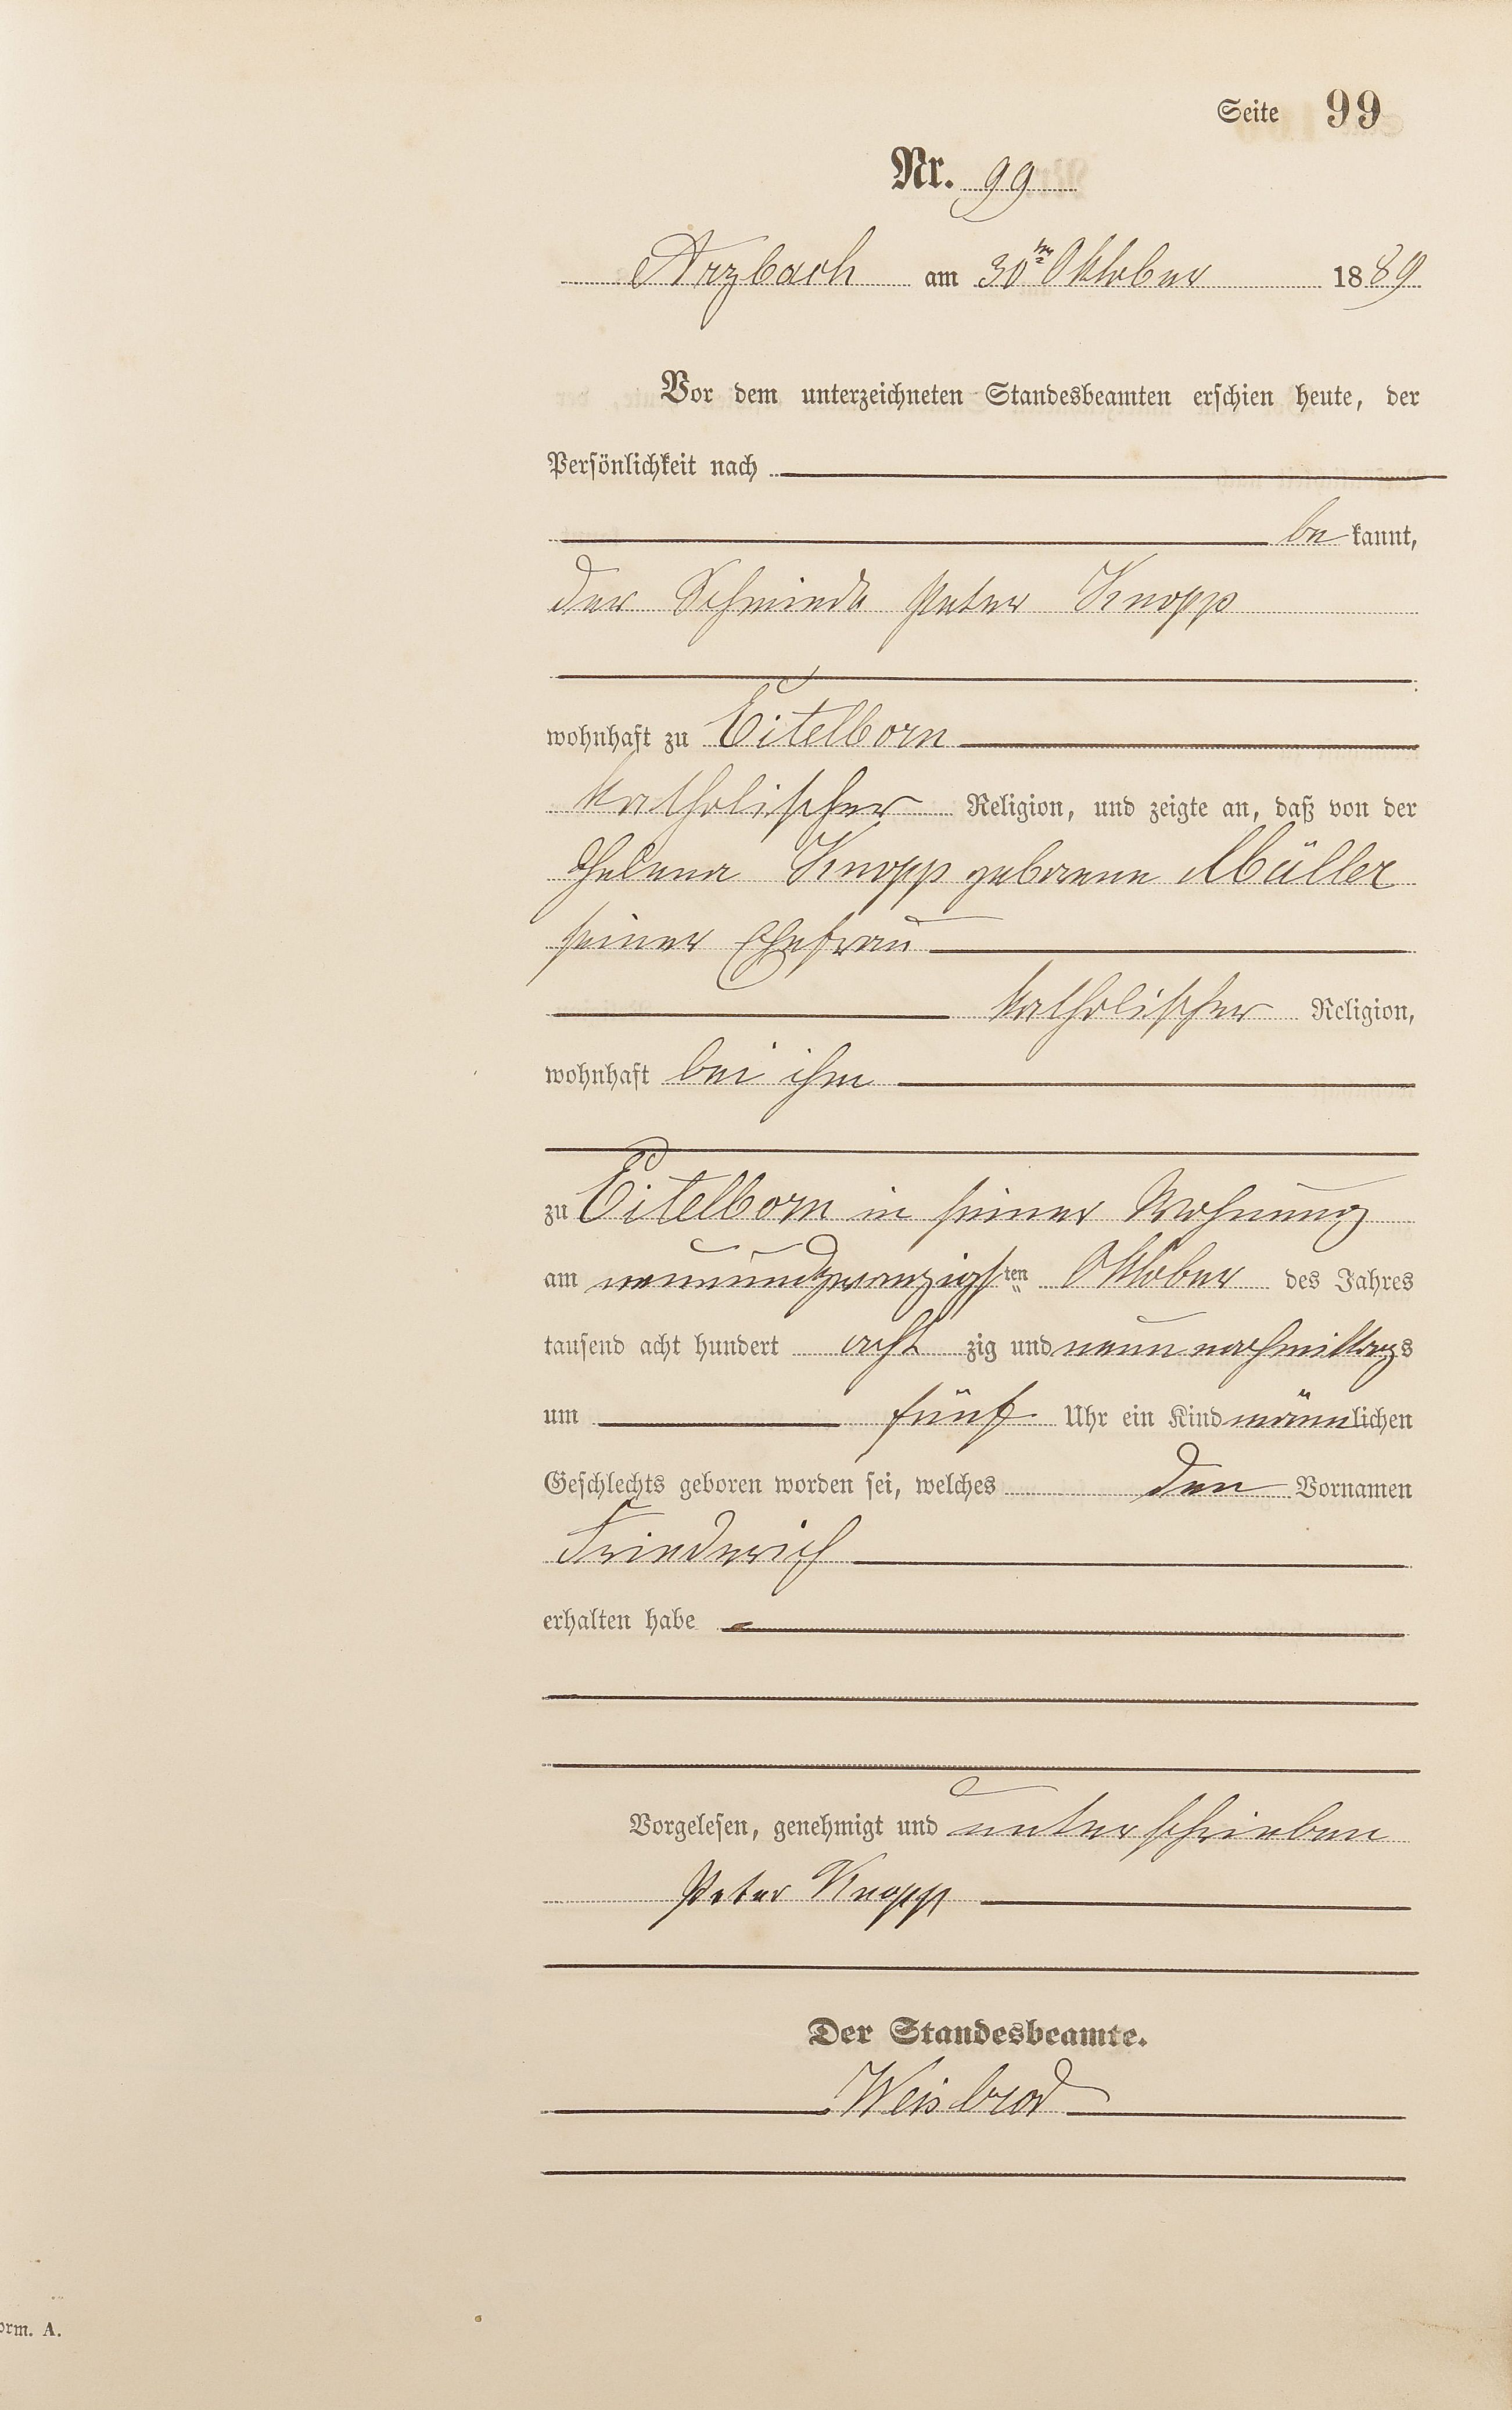 Seite 99
Nr. 99
Arzbach am 30ten Oktober 1889
Vor dem unterzeichneten Standesbeamten erschien heute, der
Persönlichkeit nach
be kannt,
der Schmiede Peter Knopp
wohnhaft zu Eitelborn
katholischer Religion, und zeigte an, daß von der
Helena Knopp geborene Müller
seiner Ehefrau
katholischer Religion,
wohnhaft bei ihm
zu Eitelborn in seiner Wohnung
am neunundzwanzigsten Oktober des Jahres
tausend acht hundert acht zig und neun nachmittags
um fünf Uhr ein Kind männlichen
Geschlechts geboren worden sei, welches den Vornamen
Friederich
erhalten habe
Vorgelesen, genehmigt und unterschrieben
Peter Knopp
Der Standesbeamte.
Weisbrod
orm. A.